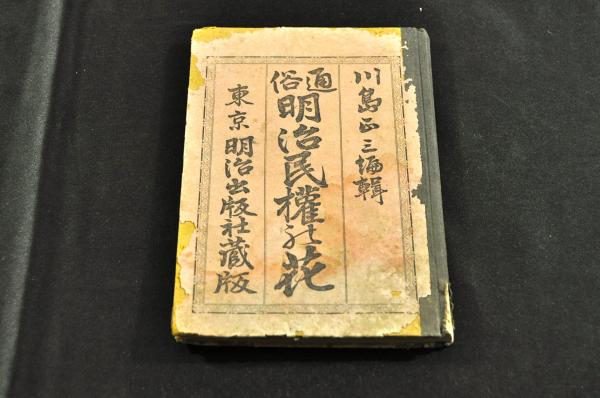 川島正三編輯
通俗明治民權の花
東京明治出版社蔵版